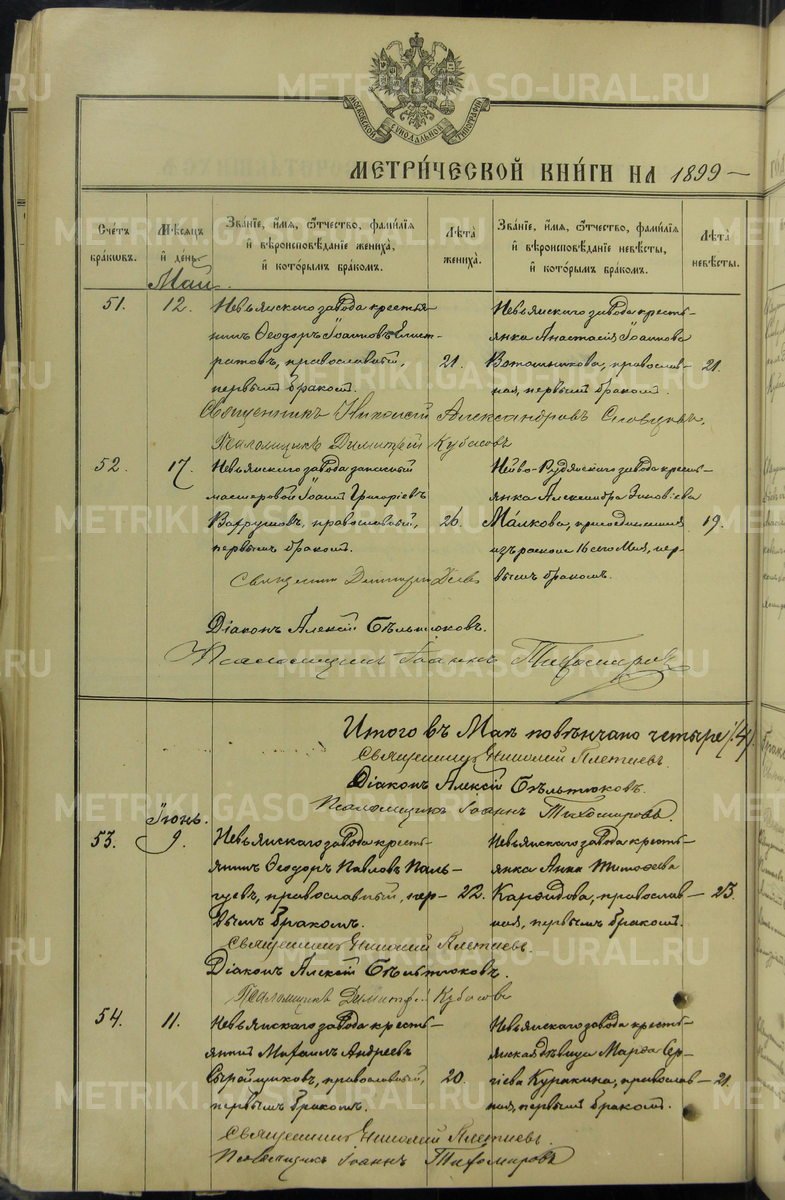 МОСКОВСКОЙ СУНОДАЛЬНОЙ ТИПОГРАФІИ
МЕТРИ́ЧЕСКОЙ КНИ́ГИ НА 1899
Сче́тъ бра́кѡвъ.
Мѣ́сяцъ и́ де́нь.
Зва́нїе, и́мя, ѻ́тчество, фами́лїя и́ вѣроисповѣ́данїе жениха̀, и́ кото́рымъ бра́комъ.
Лѣ́та жениха̀.
Зва́нїе, и́мя, ѻ́тчество, фами́лїя и́ вѣроисповѣ́данїе невѣ́сты, и́ кото́рымъ бра́комъ.
Лѣ́та невѣ́сты.
Май
51.
12.
Невьянскаго завода крестья-
нинъ Ѳеодоръ Іоанновъ Елист-
ратовъ, православный,
первымъ бракомъ.
21.
Невьянскаго завода кресть-
янка Анастасія Іоаннова
Ветошникова, православ-
ная, первымъ бракомъ.
21.
Священникъ Николай Александровъ Словцовъ.
Псаломщикъ Димитрій Кубасовъ
52
17.
Невьянскаго завода запасный
мастеровой Іоаннъ Григоріевъ
Вахрушовъ, православный,
первымъ бракомъ.
26.
Нейво-Рудянскаго завода кресть-
янка Александра Зиновіева
Малкова, присоединенная
изъ раскола 16 сего Мая, пер-
вымъ бракомъ.
19.
Священникъ Димитрій
Діаконъ Алексій Бѣльтюковъ.
Псаломщикъ Іоаннъ Тихомировъ
Итого въ Маѣ повѣнчано четыре /4/.
Священникъ Николай Плетневъ.
Діаконъ Алексій Бѣльтюковъ.
Псаломщикъ Іоаннъ Тихомировъ.
Іюнь.
53.
9.
Невьянскаго завода кресть-
янинъ Ѳеодоръ Павловъ Паль-
цевъ, православный, пер-
вымъ бракомъ.
22.
Невьянскаго завода кресть-
янка Анна Тимоѳеева
Карфидова, православ-
ная, первымъ бракомъ.
23.
Священникъ Николай Плетневъ.
Діаконъ Алексій Бѣльтюковъ.
Псаломщикъ Димитрій Кубасовъ
54.
11.
Невьянскаго завода кресть-
янинъ Михаилъ Андреевъ
Сыромщиковъ, православный,
первымъ бракомъ.
20.
Невьянскаго завода кресть-
янская дѣвица Марѳа Сер-
гіева Куракина, православ-
ная, первымъ бракомъ.
21.
Священникъ Николай Плетневъ.
Псаломщикъ Іоаннъ Тихомировъ
METRIKI.GASO-URAL.RU